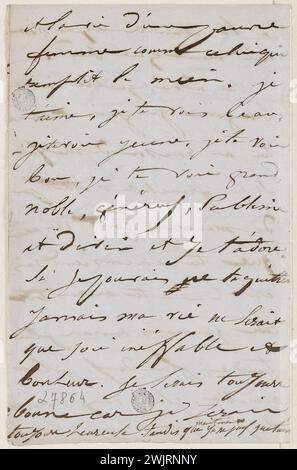 et la vie d'une pauvre
femme comme celui qui
remplit le mien. je
t'aime, je te vois beau,
je te vois jeune, je te vois
bon, je te vois grand
noble, généreux, sublime
et divin et je t'adore
Si je pouvais ne te quitter
jamais ma vie ne serait
que joie ineffable et
bonheur. Je serais toujours
bonne car je serais
toujours heureuse tandis que
27864
alamy
Image ID: 2WJRNNY
www.alamy.com